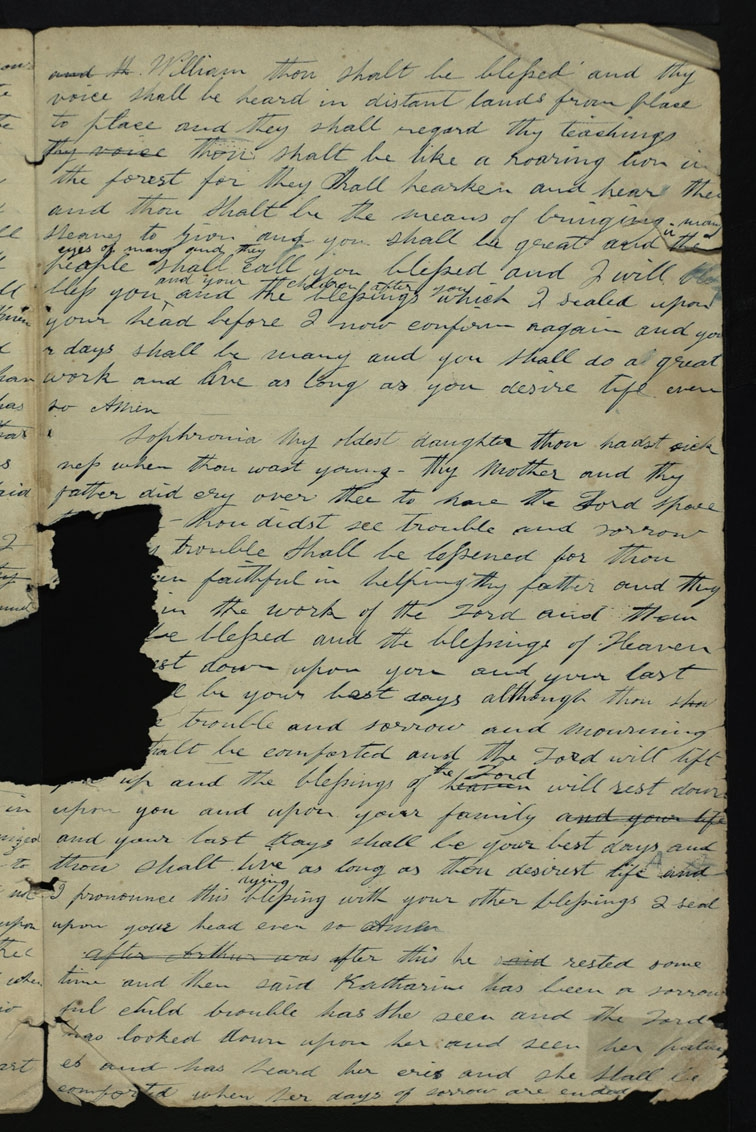 and th William thou shalt be blessed and thy
voice shall be heard in distant lands from place
to place and they shall regard thy teachings
thy voice thou shalt be like a roaring lion in
the forest for they shall hearken and hear thee
and thou shalt be the means of bringing many
sheaves to Zion and you shall be great in the
eyes of many and they
people shall call you blessed and I will
and your children after you
bless you and the blessings which I sealed upon
your head before I now confirm again and you
r days shall be many and you shall do a great
work and live as long as you desire life even
so Amen
Sophronia My oldest daughter thou hadst sick
ness when thou wast young - thy Mother and thy
father did cry over thee to have the Lord spare
- thou didst see trouble and sorrow
trouble shall be lessened for thou
faithful in helping thy father and thy
in the work of the Lord and thou
be blessed and the blessings of Heaven
est down upon you and your last
l be your best days although thou
trouble and sorrow and mourning
halt be comforted and the Lord will lift
up and the blessings of heaven will rest down
the Lord
upon you and upon your family and your life
and your last days shall be your best days and
thou shalt live as long as thou desirest life and
dying
I pronounce this blessing with your other blessings I seal
upon your head even so Amen
after Arthur was after this he said rested some
time and then said Katharine has been a sorrow
ful child trouble has she seen and the Lord
has looked down upon her and seen her patienc
es and has heard her cries and she shall be
comforted when her days of sorrow are ended